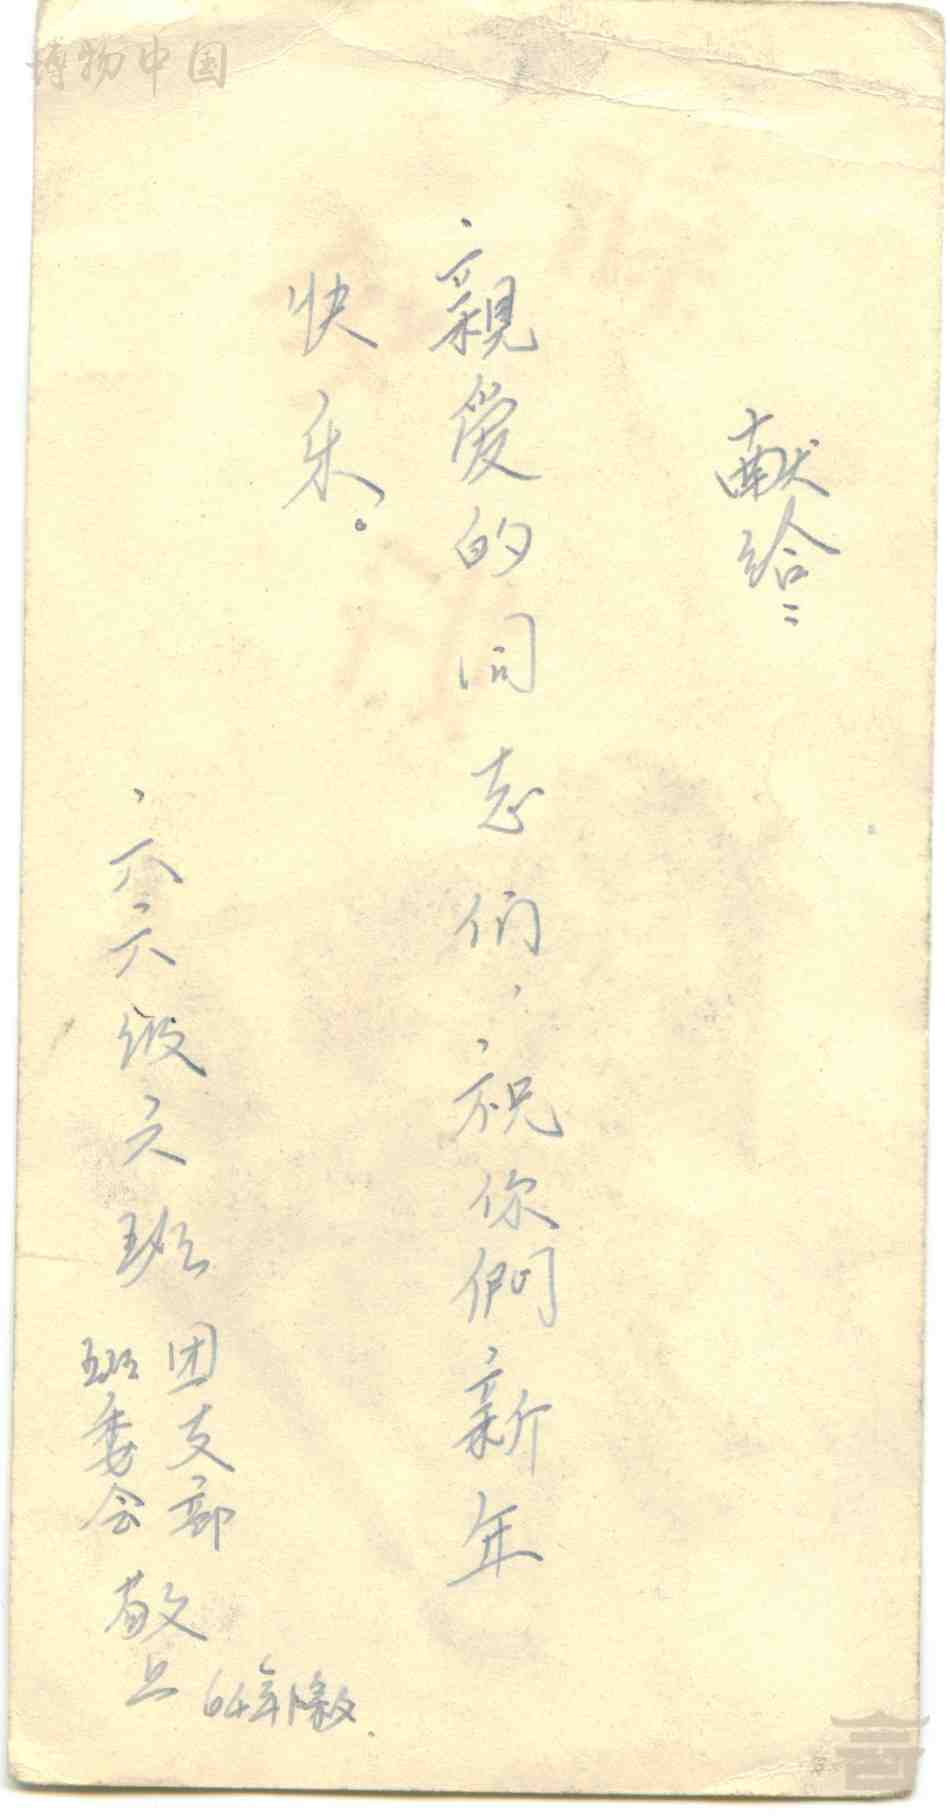 博物中国
献给：
親愛的同志们，祝你們新年
快乐。
六六级六班
团支部
班委会
敬上
64年除夕.